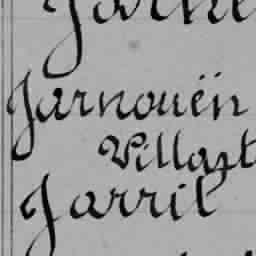 Jarnouën
Villart
Jarril